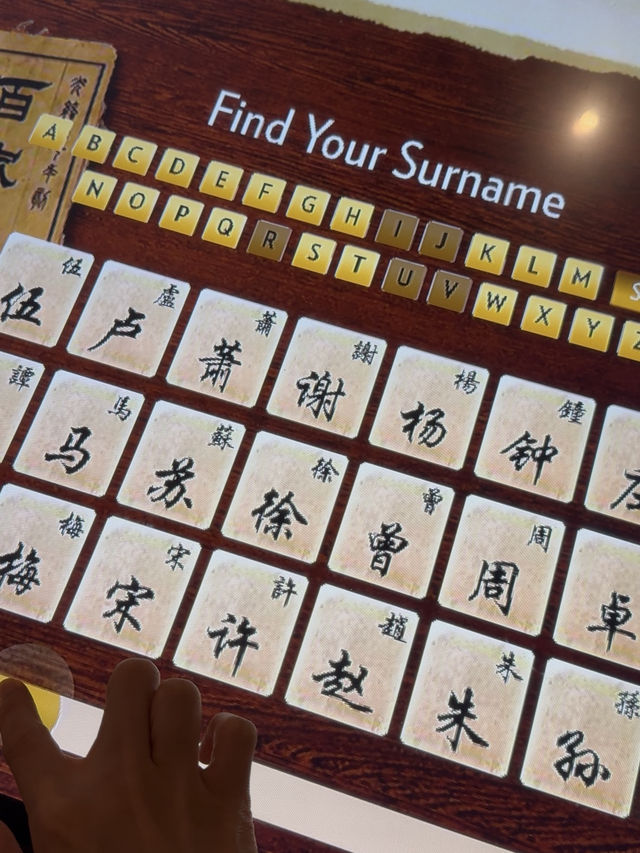 Find Your Surname
A B C D E F G H I J K L M
N O P Q R S T U V W X Y Z
伍 盧 蕭 謝 楊 鐘
伍 卢 萧 谢 杨 钟
譚 馬 蘇 徐 曾 周
马 苏 徐 曾 周 卓
梅 宋 許 趙 朱 孫
梅 宋 许 赵 朱 孙